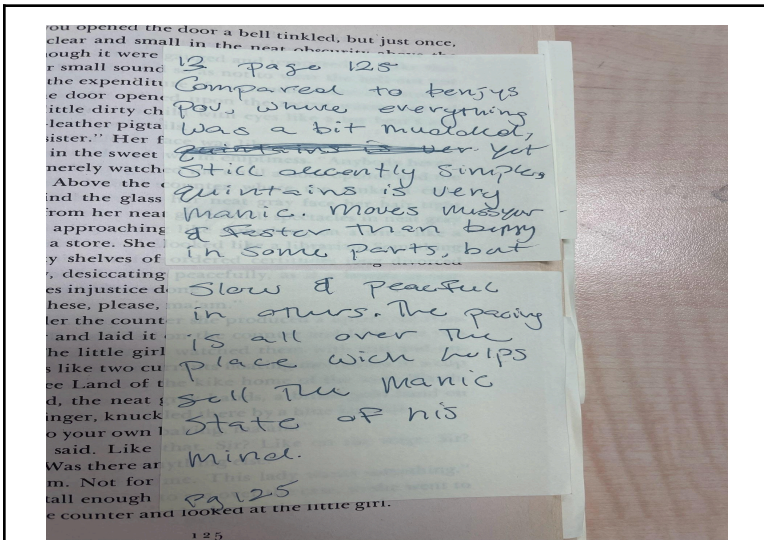 you opened the door a bell tinkled, but just once,
clear and small in the neat obscurity above the
ough it were
r small sound
the expenditu
e door opene
ittle dirty ch
-leather pigta
sister." Her f
in the sweet
nerely watch
Above the
nd the glass
from her neat
approaching
a store. She
y shelves of
, desiccating
es injustice d
hese, please,
er the count
and laid it
he little girl
s like two cu
ee Land of t
d, the neat g
inger, knuck
o your own
said. Like
Was there an
m. Not for
all enough
e counter and looked at the little girl.
125
13 page 125
Compared to benjys
pov, where everything
was a bit muddled,
quintains is ver yet
still decently simple,
quintains is very
manic. moves
& faster than benjy
in some parts, but
slow & peaceful
in others. The pacing
is all over the
place wich helps
sell the manic
state of his
mind.
pg 125